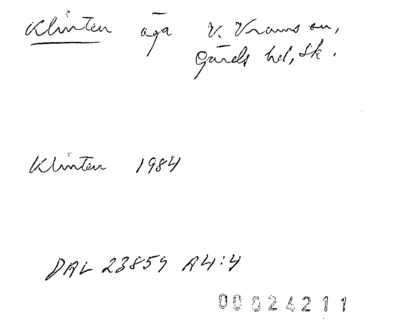 Klinten äga V. Vrams sn,
Gärds hd, Sk.
Klinten 1984
DAL 23859 A4:4
00024211